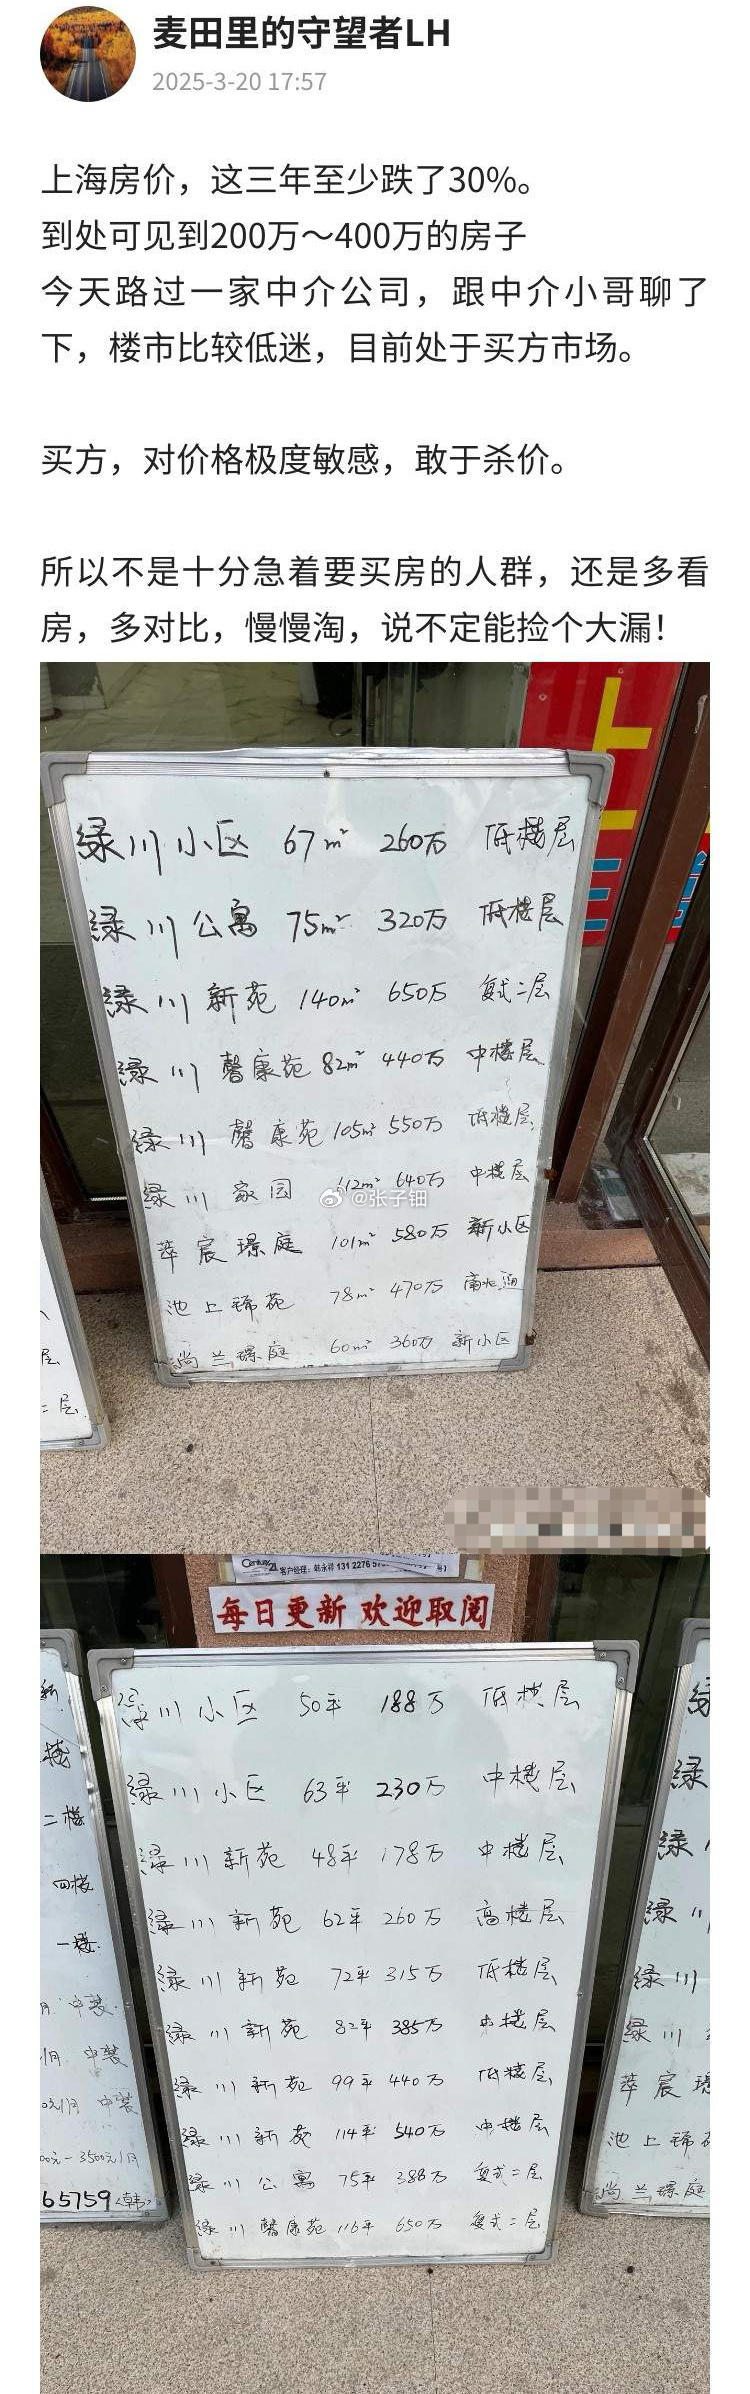 麦田里的守望者LH
2025-3-20 17:57
上海房价，这三年至少跌了30%。
到处可见到200万～400万的房子
今天路过一家中介公司，跟中介小哥聊了
下，楼市比较低迷，目前处于买方市场。
买方，对价格极度敏感，敢于杀价。
所以不是十分急着要买房的人群，还是多看
房，多对比，慢慢淘，说不定能捡个大漏！
绿川小区 67m² 260万 低楼层
绿川公寓 75m² 320万 低楼层
绿川新苑 140m² 650万 复式二层
绿川馨康苑 82m² 440万 中楼层
绿川馨康苑 105m² 550万 低楼层
绿川家园 112m² 640万 中楼层
@张子钿
萃宸璟庭 101m² 580万 新小区
池上锦苑 78m² 470万 南北通
尚兰璟庭 60m² 360万 新小区
层
二层
Century 21
客户经理：韩永祥 131 2276 5
每日更新 欢迎取阅
绿川小区 50平 188万 低楼层
绿川小区 63平 230万 中楼层
绿川新苑 48平 178万 中楼层
绿川新苑 62平 260万 高楼层
绿川新苑 72平 315万 低楼层
绿川新苑 82平 385万 中楼层
绿川新苑 99平 440万 低楼层
绿川新苑 114平 540万 中楼层
绿川公寓 75平 388万 复式二层
绿川馨康苑 116平 650万 复式二层
楼
二楼
四楼
一楼
月 中装
/月 中装
0元/月 中装
00元-3500元/月
65759<韩>
绿
绿
绿川
绿川
绿川
萃宸璟
池上锦
尚兰璟庭